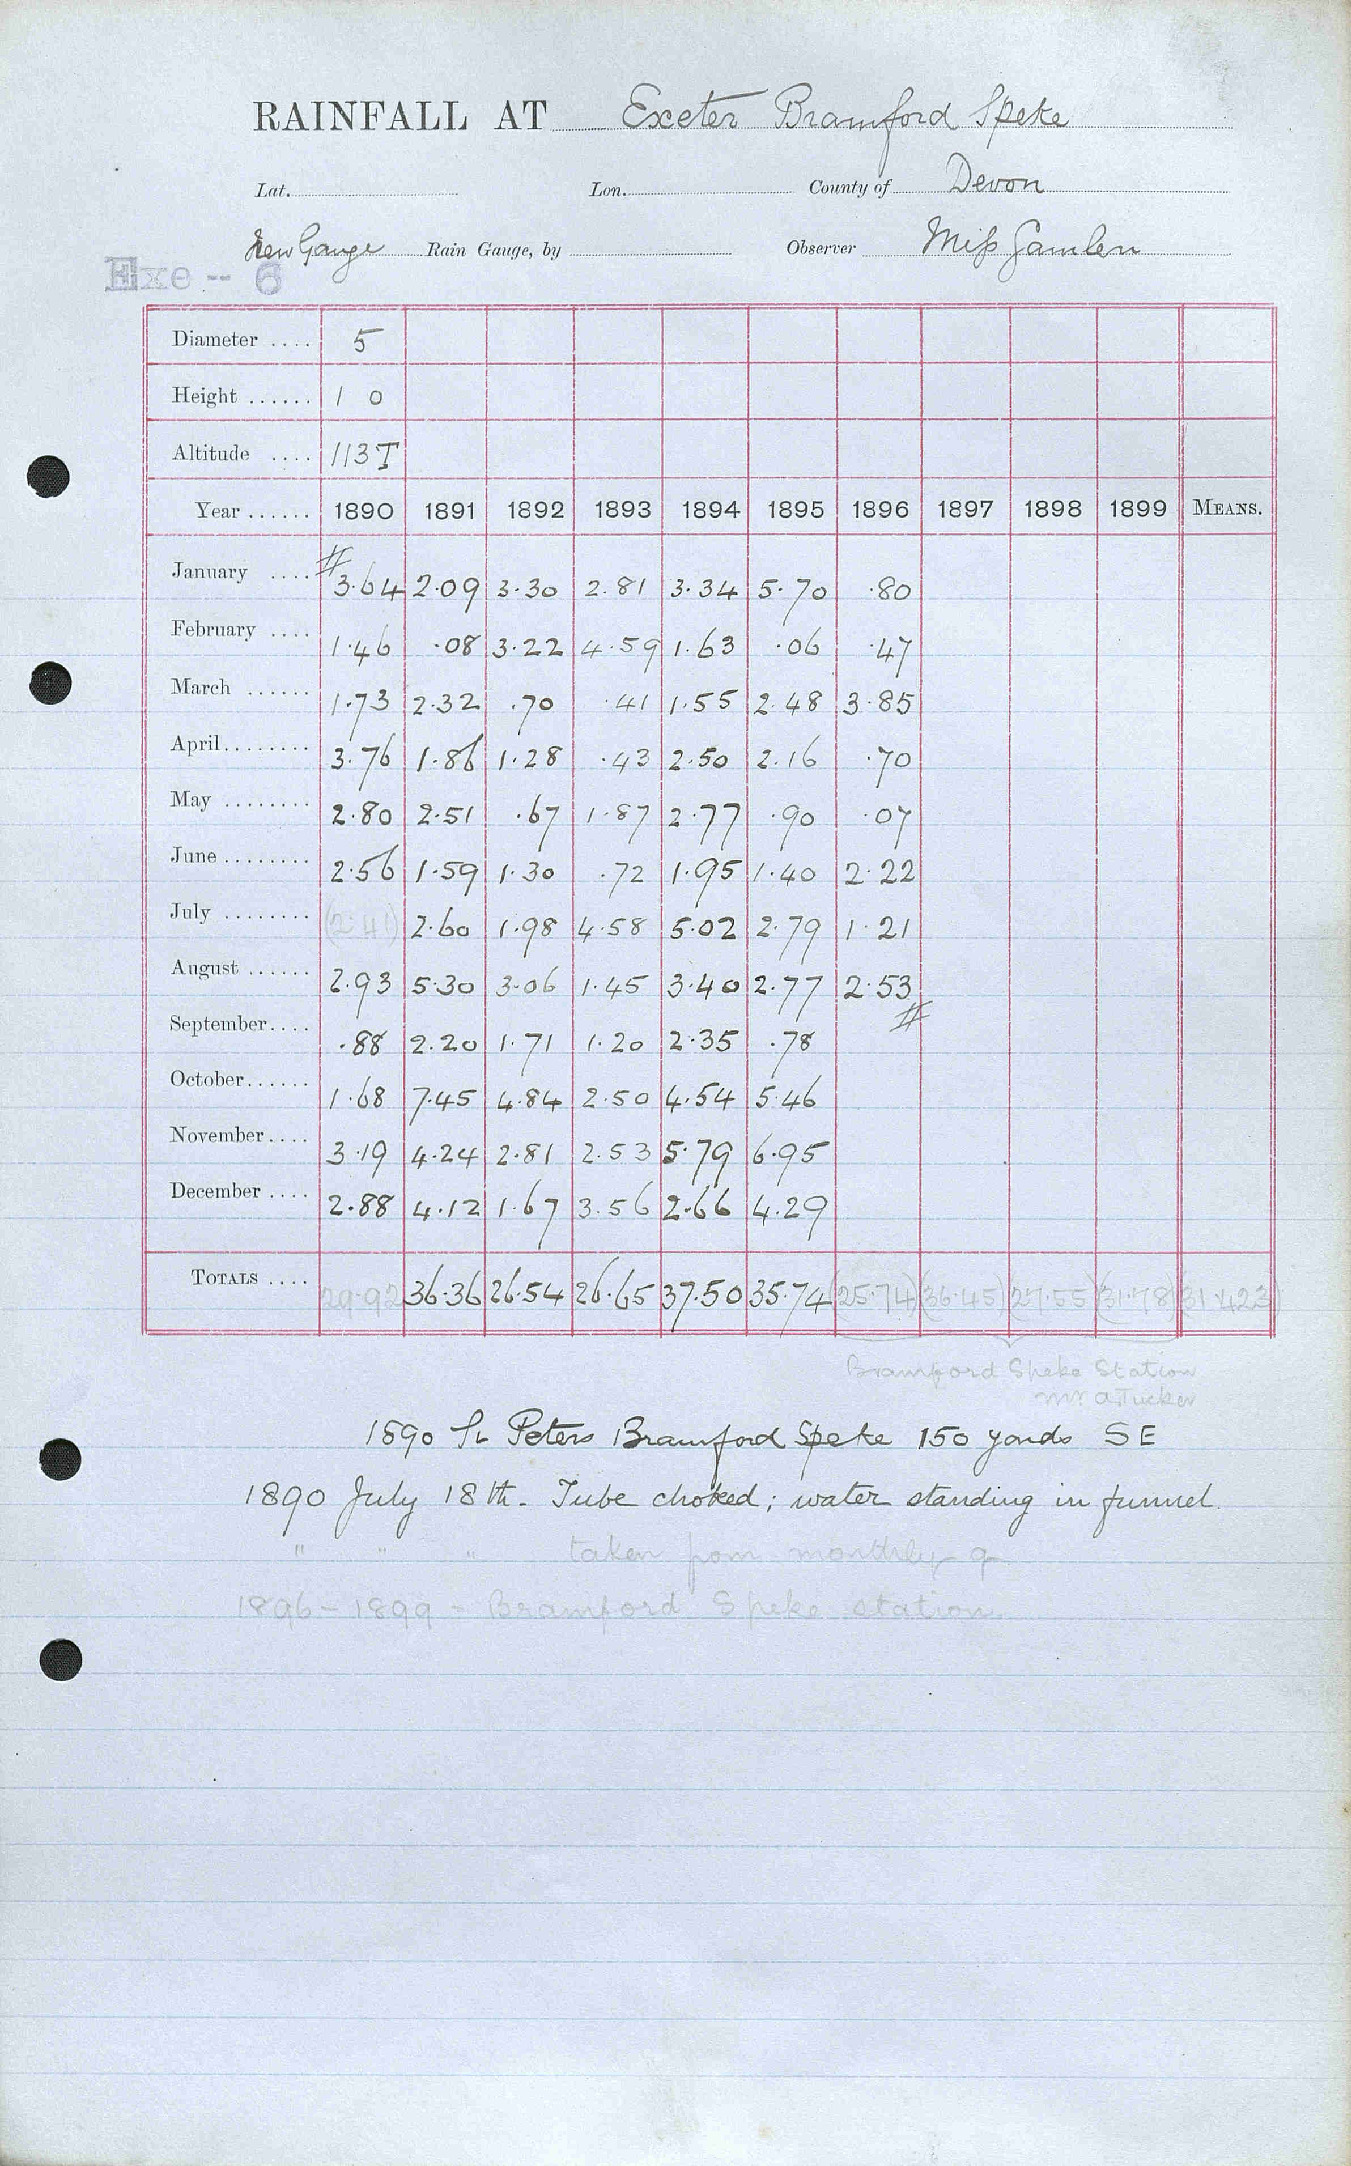 RAINFALL AT Exeter Bramford Speke
Lat. Lon. County of Devon
New Gauge Rain Gauge, by Observer Miss Gamlen
Exe -- 6
Diameter .... 5
Height ...... 1 0
Altitude .... 113T
Year ...... 1890 1891 1892 1893 1894 1895 1896 1897 1898 1899 MEANS.
January .... # 3.64 2.09 3.30 2.81 3.34 5.70 .80
February .... 1.46 .08 3.22 4.59 1.63 .06 .47
March ...... 1.73 2.32 .70 .41 1.55 2.48 3.85
April ........ 3.76 1.86 1.28 .43 2.50 2.16 .70
May ........ 2.80 2.51 .67 1.87 2.77 .90 .07
June ........ 2.56 1.59 1.30 .72 1.95 1.40 2.22
July ........ (2.41) 2.60 1.98 4.58 5.02 2.79 1.21
August ...... 2.93 5.30 3.06 1.45 3.40 2.77 2.53 #
September.... .88 2.20 1.71 1.20 2.35 .78
October...... 1.68 7.45 4.84 2.50 4.54 5.46
November.... 3.19 4.24 2.81 2.53 5.79 6.95
December .... 2.88 4.12 1.67 3.56 2.66 4.29
TOTALS .... 29.92 36.36 26.54 26.65 37.50 35.74 (25.74) (36.45) (27.55) (31.78) (31.423)
Bramford Speke Station
Mr A Tucker
1890 St Peters Bramford Speke 150 yards SE
1890 July 18th. Tube choked; water standing in funnel.
" " " taken from monthly g
1896-1899 - Bramford Speke station